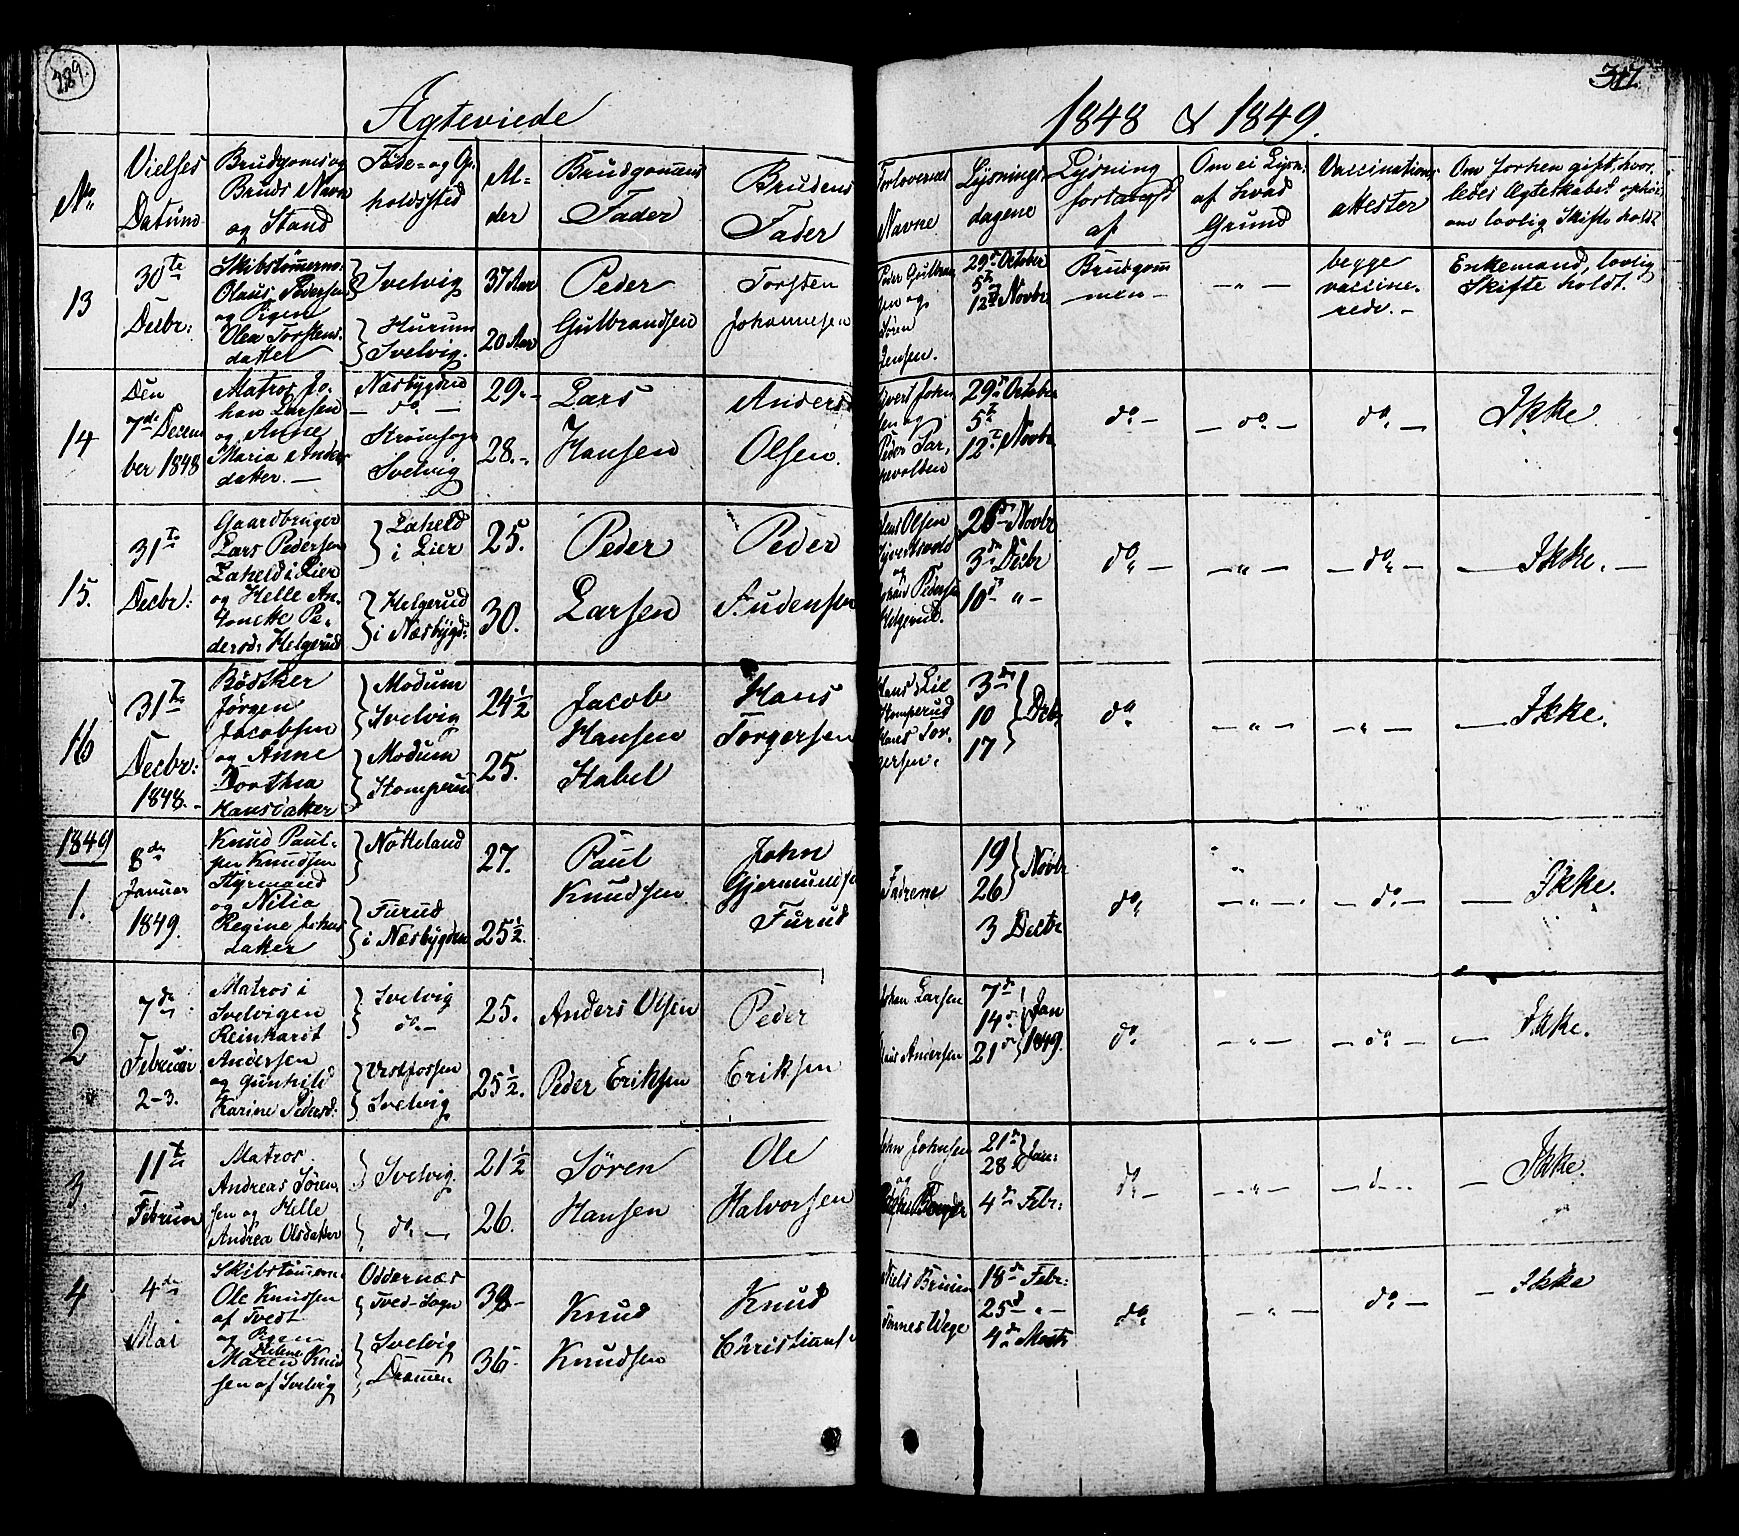 289.
Ægteviede
1848 & 1849.
317
No
Vielses
Datum
Brudgoms og
Bruds Navn
og Stand
Føde- og Op-
holdssted
Al-
der
Brudgommens
Fader
Brudens
Fader
Forloverens
Navne
Lysnings-
dagene
Lysning
forlangt
af
Om ei Lysn:
af hvad
Grund
Vaccinations
attester
Om forhen gift, hvor-
ledes Ægteskabet ophör
om lovlig Skifte holdt
13
30te
Decbr:
Skibstömerm.
Olaus Pedersen
og Pigen
Olea Torstens-
datter
Svelvig
Hurum
Svelvig.
37 Aar
20 Aar
Peder
Gulbrandsen
Torsten
Johannesen
Peder Gulbran
sen og
Sören
Jensen.
29de October
5te
12te Novbr
Brudgom
men -
- " -
begge
vaccine-
rede. -
Enkemand, lovlig
Skifte holdt.
14
Den
7de Decem
ber 1848
Matros Jo-
han Larsen
og Anne
Maria Anders
datter. -
Næsbygden
- do. -
Svelvig
29.-
28.-
Lars
Hansen
Anders
Olsen.
29de October
5te
12te Novbr
do -
- do. -
do -
Ikke.
15.
31te
Decbr:
Gaardbruger
Lars Pedersen
Laheld i Lier
og Helle An-
tonette Pe-
dersd: Helgerud
Laheld
i Lier
Helgerud
i Næsbygd:
25.
30.
Peder
Larsen
Peder
Audensen
Jens Olsen
og
Johan Pedersen
Helgerud.
26de Novbr
3de Decbr
10de " -
do -
- " -
- do -
- Ikke. -
16
31te
Decbr:
1848.-
Bödker
Jörgen
Jacobsen
og Anne
Dorthea
Hansdatter
Modum
Svelvig
Modum
Komperud
24 1/2
25.
Jacob
Hansen
Habel
Hans
Torgersen
Hans Lie
Komperud
Hans Tor-
gersen.
3de
10
17
Decbr
do
- " -
- " -
- Ikke.
1849
1.
8de
Januar
1849.
Knud Paul-
sen Knudsen
Styrmand
og Nilia
Regine Johns
datter
Nötteland
Furud
i Næsbygden
27.
25 1/2.
Paul
Knudsen
John
Gjermundsen
Furud
Fædrene
19
26
Novbr
3 Decbr
do
- " -
- do -
- Ikke.
2
7de
Februar
2-3.
Matros i
Svelvigen
Reinhardt
Andersen
og Gunhild
Karine Pedersd:
Svelvig
do -
Vestfossen
Svelvig
25.
25 1/2.
Anders Olsen
Peder Eriksen
Peder
Eriksen
Johan Larsen
Claus Andersen
7de
14de
21de
Jan
1849.
do
- " -
- do -
- Ikke.
3.
11te
Februar
Matros
Andreas Sören-
sen og Helle
Andrea Olsdatter
Svelvig.
do -
21 1/2
26.
Sören
Hansen
Ole
Halvorsen
John Johnsen
og
21de
28
Jan:
4de Febr:
do -
- " -
- d -
- Ikke
4
4de
Mai
Skibstömerm.
Ole Knudsen
af Tvedt
og Pigen
Helene
Maren Knud
sen af Svelvig
Oddernæs
Tved-Sogn
Svelvig
Drammen
38-
36-
Knud
Knudsen
Knud
Christians
Niels Bruun
Tönnes Wege
18de Febr:
25d " -
4de Marts
do
- " -
do -
- Ikke